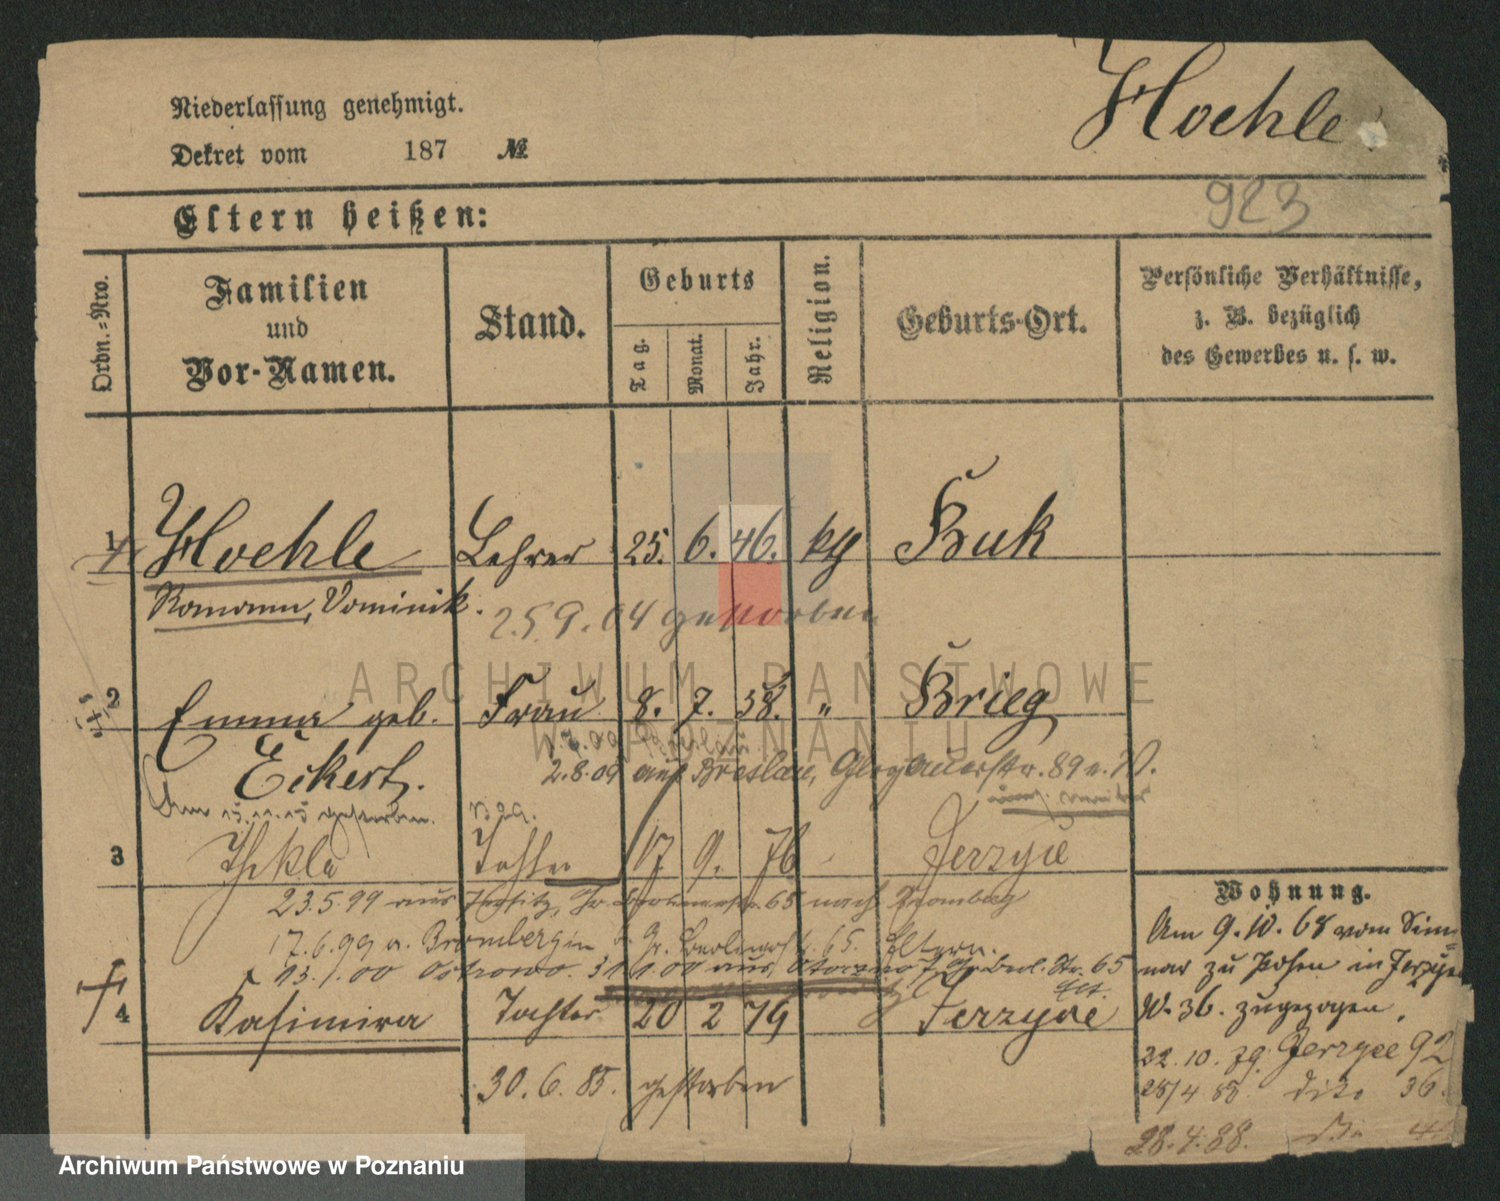 Niederlassung genehmigt.
Dekret vom 187 №
Hoehle.
923
Eltern heißen:
Ordn.=Nro.
Familien
und
Vor-Namen.
Stand.
Geburts
Tag.
Monat.
Jahr.
Religion.
Geburts-Ort.
Persönliche Verhältnisse,
z. B. bezüglich
des Gewerbes u. s. w.
1 Hoehle Lehrer 25. 6. 46. kth Buk
Romann, Dominik.
25 9. 04 gestorben
2 Emma geb. Frau 8. 7. 38. " Brieg
Eckert.
2.8.09 aus Breslau, 89
Am gestorben.
3 Thekla Tochter 17 9. 76 Jerzyce
23.5.99 aus Jersitz, Gr. Berlinerstr. 65 nach Bromberg
17.6.99 a. Bromberg in Gr. Berlinerst. 65. Eltern.
13.1.00 Ostrowo. 31.1.00 aus Ostrowo Gr. Berl. Str. 65
4 Kasimira Tochter 20 2 79 Jerzyce
30. 6. 85. gestorben
Wohnung.
Am 9. 10. 68 vom
zu Posen in Jerzyce
N. 36. zugezogen.
22. 10. 79. Jerzyce 92
28/4 88. dito 36.
28.4.88.
ARCHIWUM PAŃSTWOWE
W POZNANIU
Archiwum Państwowe w Poznaniu